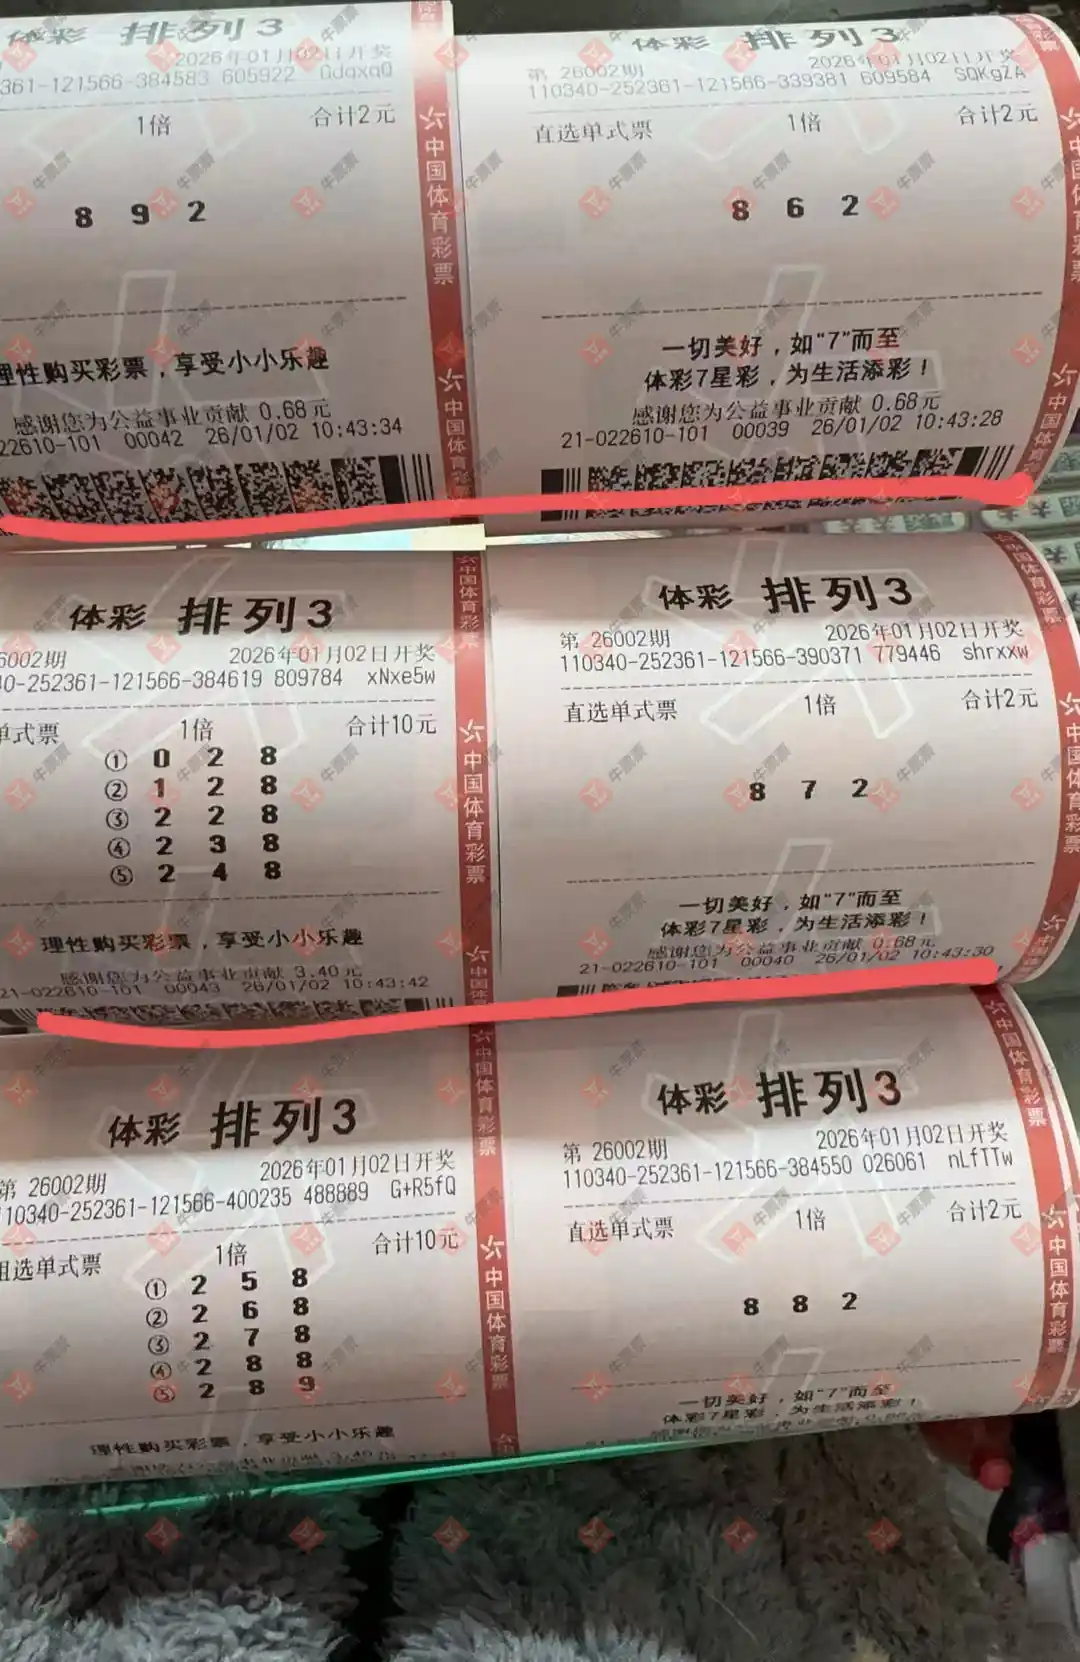 体彩 排列3
2026年01月02日开奖
361-121566-384583 605922 QdqxqQ
1倍 合计2元
8 9 2
理性购买彩票，享受小小乐趣
感谢您为公益事业贡献 0.68元
22610-101 00042 26/01/02 10:43:34
中国体育彩票
体彩 排列3
第 26002期 2026年01月02日开奖
110340-252361-121566-339381 609584 SQKgZA
直选单式票 1倍 合计2元
8 6 2
一切美好，如“7”而至
体彩7星彩，为生活添彩！
感谢您为公益事业贡献 0.68元
21-022610-101 00039 26/01/02 10:43:28
中国体育彩票
体彩 排列3
6002期 2026年01月02日开奖
40-252361-121566-384619 809784 xNxe5w
单式票 1倍 合计10元
① 0 2 8
② 1 2 8
③ 2 2 8
④ 2 3 8
⑤ 2 4 8
理性购买彩票，享受小小乐趣
感谢您为公益事业贡献 3.40元
21-022610-101 00043 26/01/02 10:43:42
中国体育彩票
体彩 排列3
第 26002期 2026年01月02日开奖
110340-252361-121566-390371 779446 shrxxw
直选单式票 1倍 合计2元
8 7 2
一切美好，如“7”而至
体彩7星彩，为生活添彩！
感谢您为公益事业贡献 0.68元
21-022610-101 00040 26/01/02 10:43:30
中国体育彩票
体彩 排列3
第 26002期 2026年01月02日开奖
110340-252361-121566-400235 488889 G+R5fQ
组选单式票 1倍 合计10元
① 2 5 8
② 2 6 8
③ 2 7 8
④ 2 8 8
⑤ 2 8 9
理性购买彩票，享受小小乐趣
中国体育彩票
体彩 排列3
第 26002期 2026年01月02日开奖
110340-252361-121566-384550 026061 nLfTTw
直选单式票 1倍 合计2元
8 8 2
一切美好，如“7”而至
体彩7星彩，为生活添彩！
中国体育彩票
牛票票